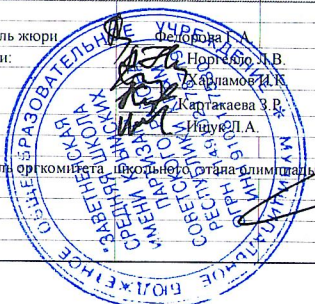 ль жюри Федорова Г.А.
и: Норгелло Л.В.
Харламов И.К.
Картакаева З.Р.
Ищук Л.А.
ль оргкомитета школьного этапа олимпиады
МУНИЦИПАЛЬНОЕ БЮДЖЕТНОЕ ОБЩЕОБРАЗОВАТЕЛЬНОЕ УЧРЕЖДЕНИЕ
"ЗАВЕТНЕНСКАЯ
СРЕДНЯЯ ШКОЛА
ИМЕНИ КРЫМСКИХ
ПАРТИЗАН"
СОВЕТСКОГО
РЕСПУБЛИКИ
ОГРН
ИНН